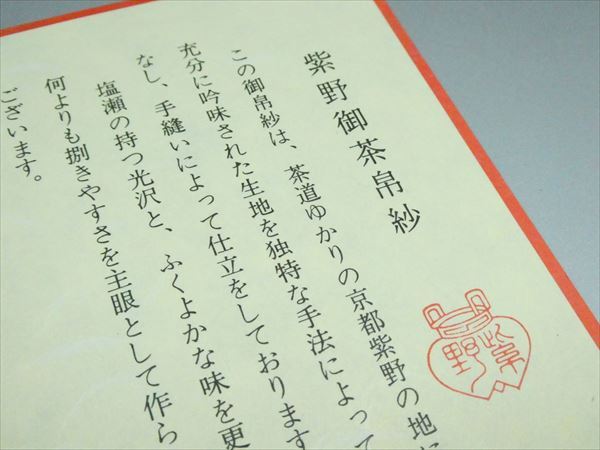 紫野御茶帛紗
この御帛紗は、茶道ゆかりの京都紫野の地に
充分に吟味された生地を独特な手法によって
なし、手縫いによって仕立をしております
塩瀬の持つ光沢と、ふくよかな味を更
何よりも捌きやすさを主眼として作ら
ございます。
紫野